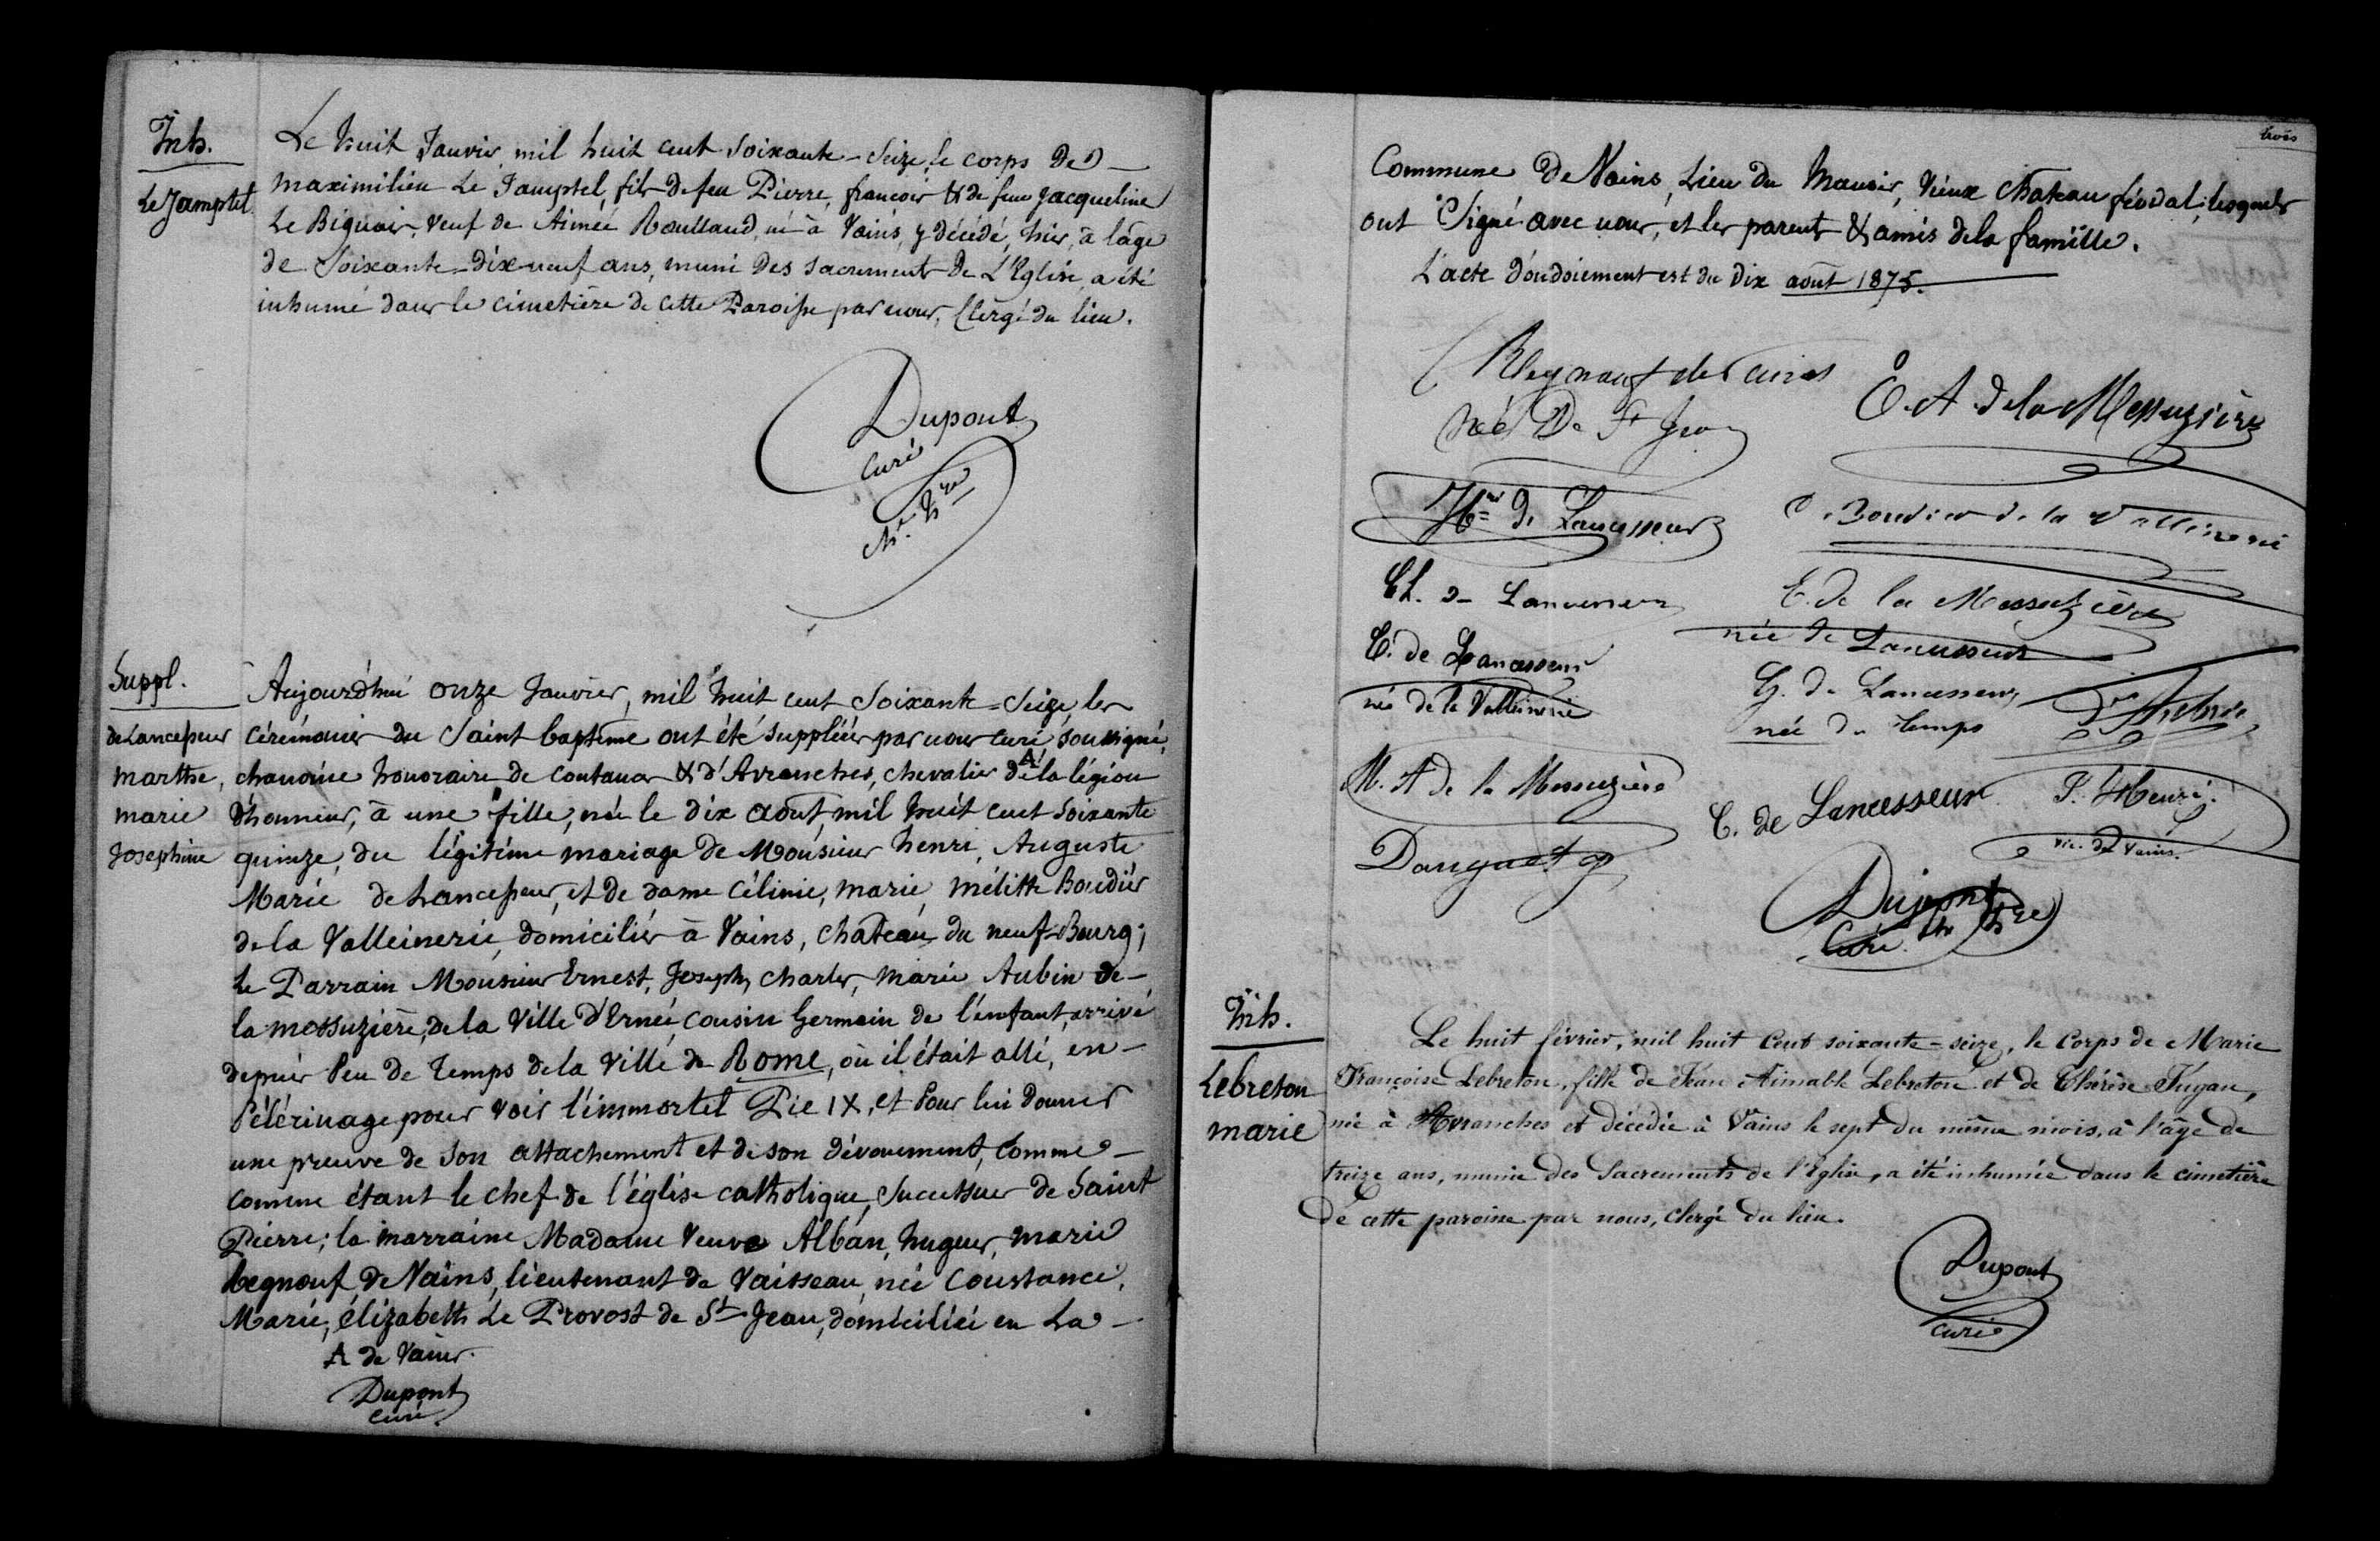 Inh.
Le Jamptel
Le huit Janvier, mil huit cent soixante-seize, le corps de
Maximilien Le Jamptel, fils de feu Pierre, françois & de feue Jacqueline
Le Biguair, veuf de Aimée Roulland, né à Vains, y décédé, hier, à l'âge
de soixante-dix-neuf ans, muni des sacrements de l'Eglise, a été
inhumé dans le cimetière de cette Paroisse par nous, Clergé du lieu.
Dupont
Curé
ch. h.re
Suppl.
de Lancesseur
marthe,
marie
Josephine
Aujourd'hui onze Janvier, mil huit cent soixante-seize, les
cérémonies du Saint baptême ont été suppléées par nous curé, soussigné,
chanoine honoraire de Coutances & d'Avranches, chevalier de la légion
d'honneur, à une fille, née le dix août, mil huit cent soixante
quinze, du légitime mariage de Monsieur henri, Auguste
Marie de Lancesseur, et de dame Célinie, marie, mélitte Boudier
de la Valleinerie, domiciliés à Vains, château du neuf-Bourg;
Le Parrain Monsieur Ernest, Joseph, Charles, Marie Aubin de
la messuzière, de la ville d'Ernée, cousin Germain de l'enfant, arrivé
depuis Peu de Temps de la ville de Rome, où il était allé, en
Pélérinage pour voir l'immortel Pie IX, et Pour lui donner
une preuve de son attachement et de son dévouement, comme
comme étant le chef de l'église catholique, successeur de Saint
Pierre; la marraine Madame veuve Alban, hugues, marie
Regnouf, de Vains, lieutenant de Vaisseau, née Constance,
Marie, élizabeth Le Provost de St Jean, domiciliée en La
A de Vains.
Dupont
Curé
trois
Commune de Vains, Lieu du Manoir, vieux Chateau féodal; lesquels
ont signé avec nous, et les parents & amis de la famille.
L'acte d'ondoiement est du dix août 1875.
Regnouf de Vains
née De St Jean
E. A. de la Messuzière
H.ri de Lancesseur
C. Boudier de la Valleinerie
Ch. de Lancesseur
E. de la Messuzière
née de Lancesseur
C. de Lancesseur
née de la Valleinerie
G. de Lancesseur
née de
M. A de la Messuzière
C. de Lancesseur
vic. de Vains.
Dupont
Curé ch. h.re
Inh.
Lebreton
marie
Le huit février, mil huit cent soixante-seize, le corps de Marie
Françoise Lebreton, fille de Jean Aimable Lebreton et de Thérèse Jugan,
née à Avranches et décédée à Vains le sept du même mois, à l'âge de
treize ans, munie des Sacrements de l'Eglise, a été inhumée dans le cimetière
de cette paroisse par nous, clergé du lieu.
Dupont
curé